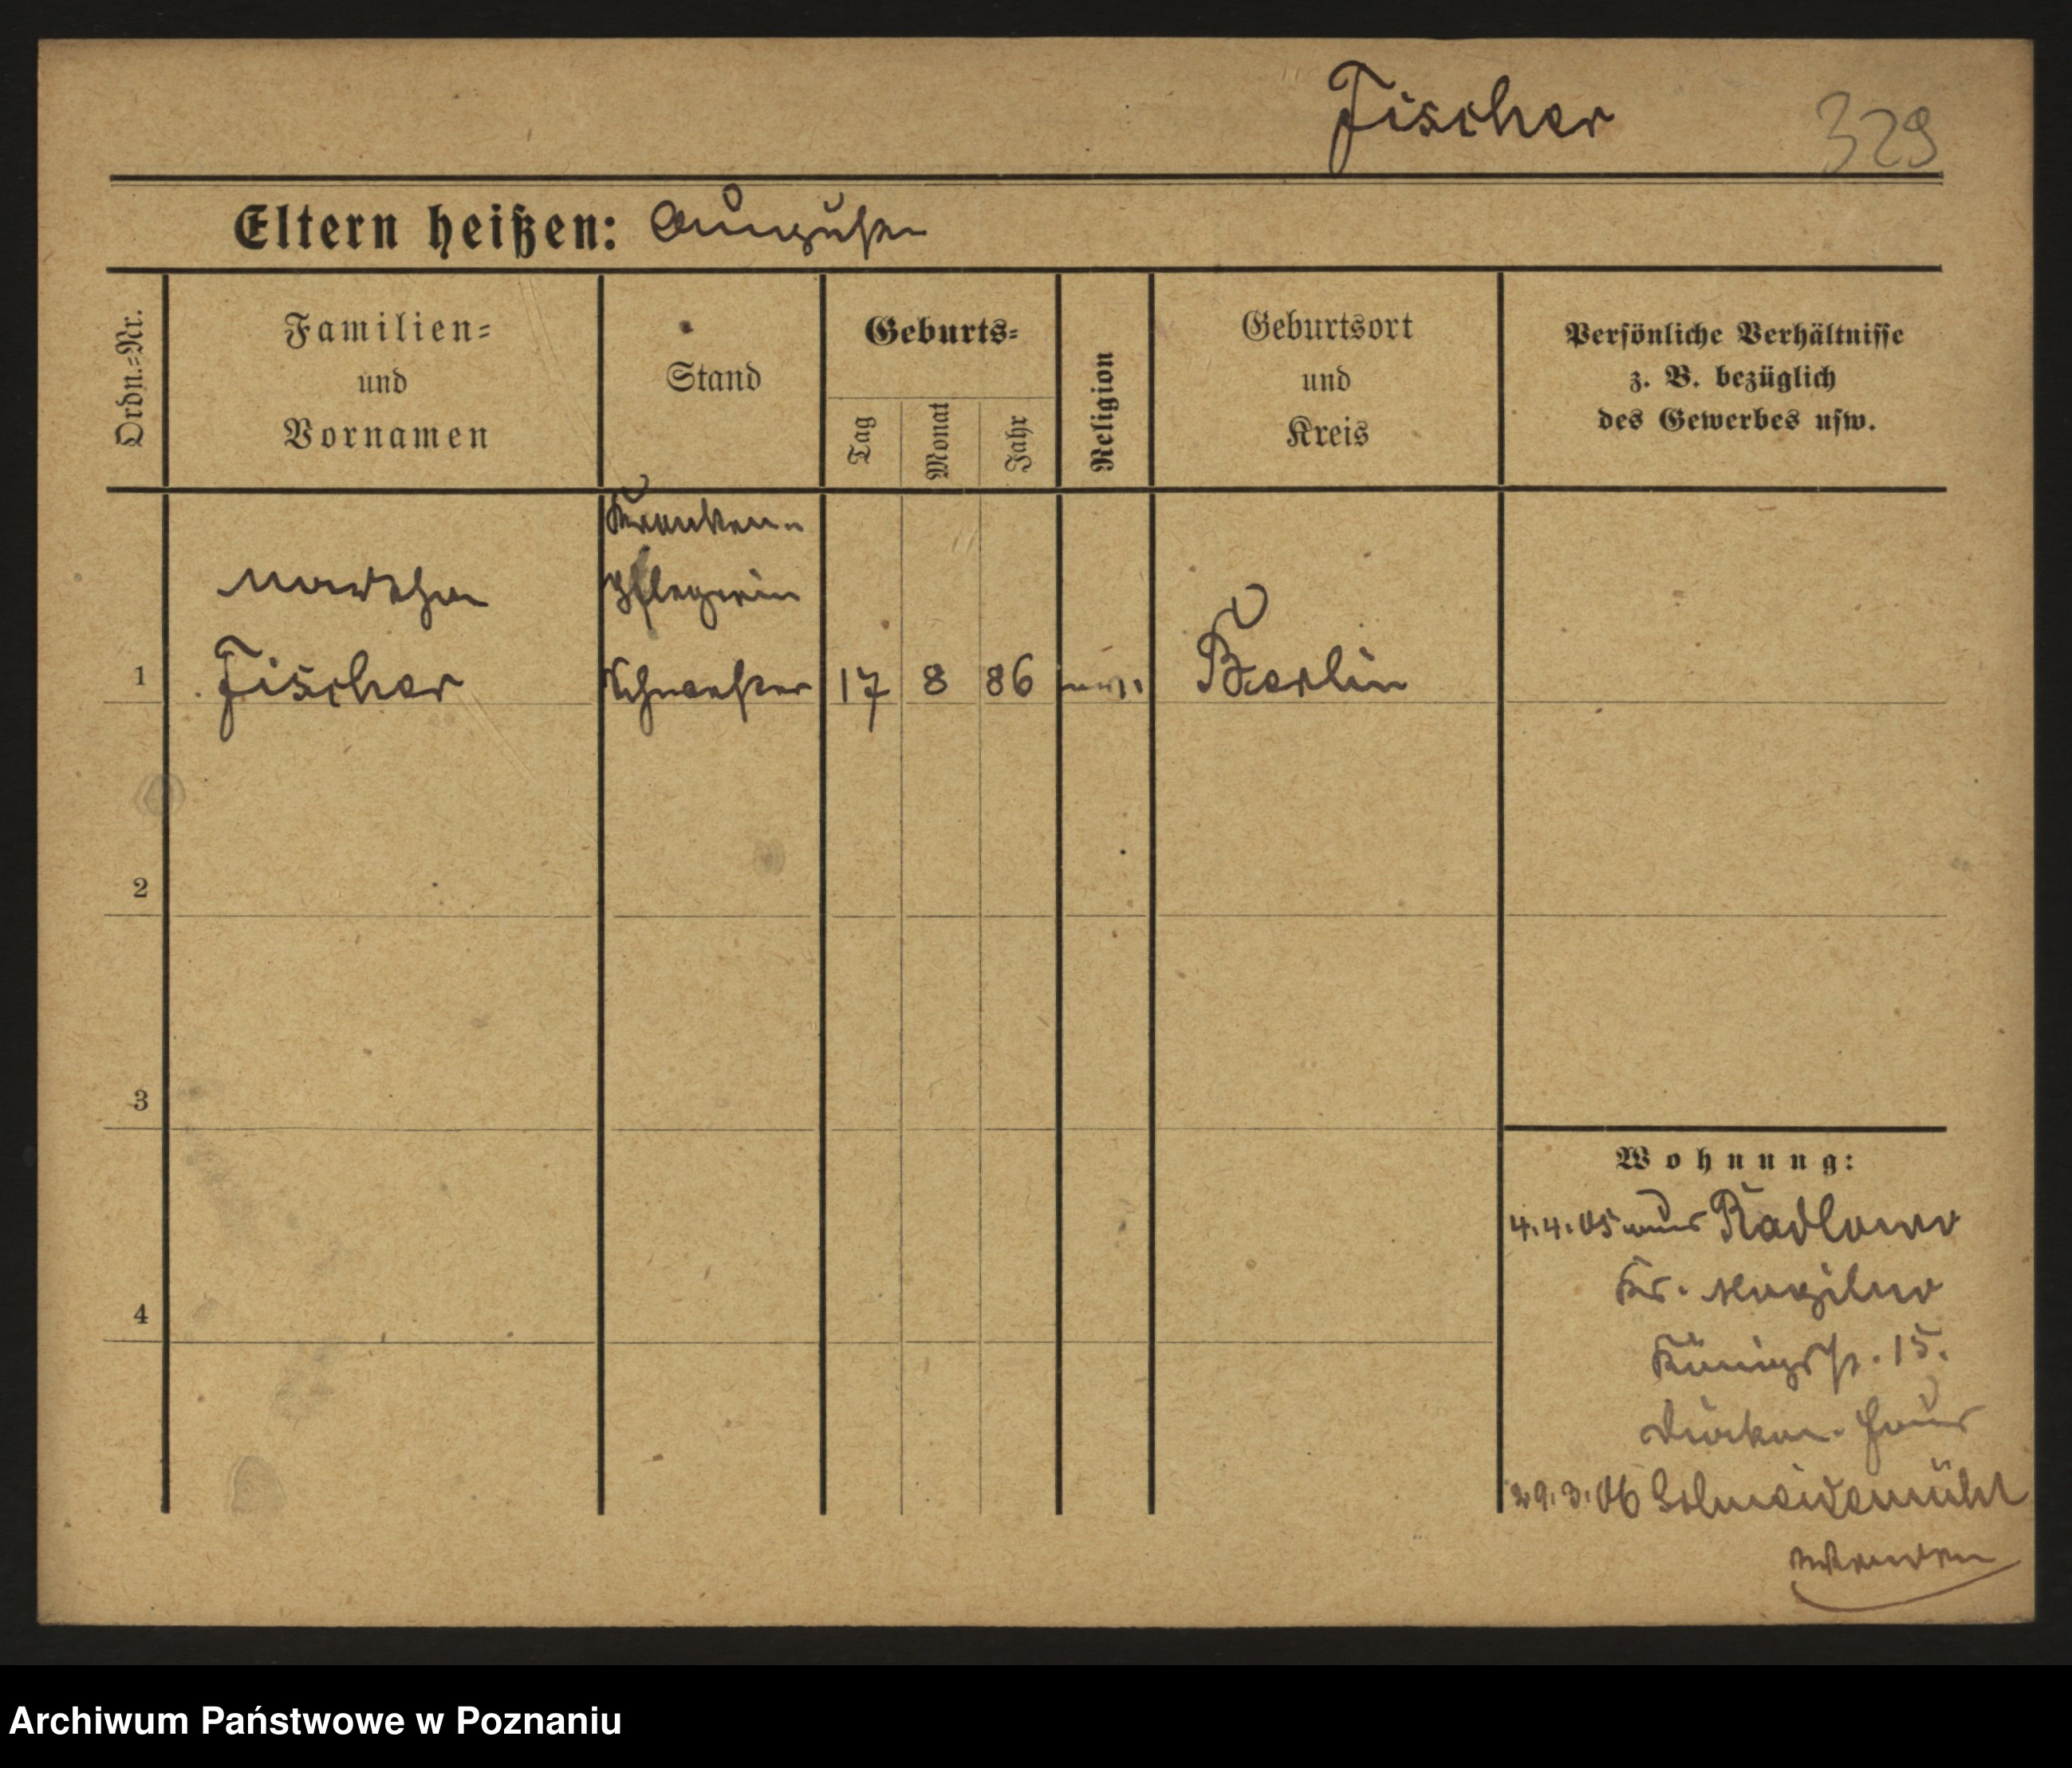 Fischer
329
Eltern heißen: Auguste
Ordn.=Nr.
Familien=
und
Vornamen
Stand
Geburts=
Tag
Monat
Jahr
Religion
Geburtsort
und
Kreis
Persönliche Verhältnisse
z. B. bezüglich
des Gewerbes usw.
Kranken-
pflegerin
Martha
1 Fischer Schwester 17 8 86 ev. Berlin
2
3
4
Wohnung:
4.4.05 aus Radlowo
Kr. Mogilno
Königstr. 15.
Diakon. Haus
29.3.06 Schneidemühl
Archiwum Państwowe w Poznaniu